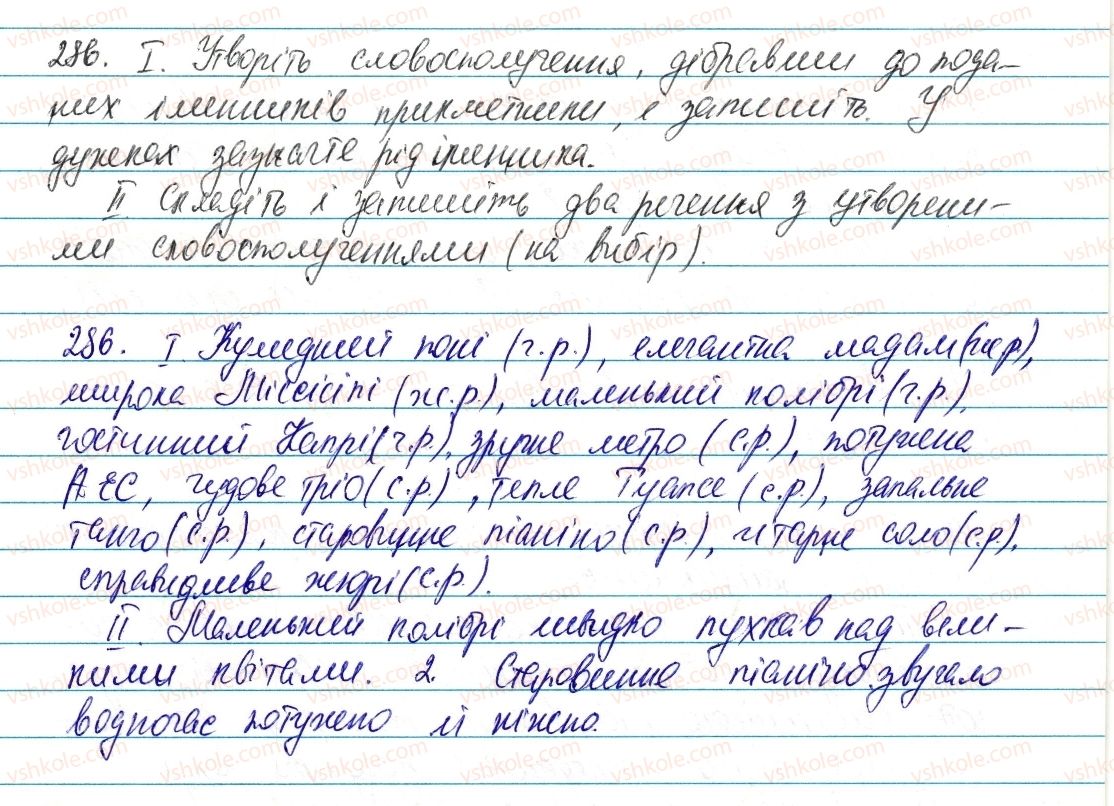 286. І. Утворіть словосполучення, дібравши до пода-
них іменників прикметники, і запишіть. У
дужках зазначте рід іменника.
ІІ Складіть і запишіть два речення з утворени-
ми словосполученнями (на вибір).
286. І. Кумедний поні (ч.р.), елегантна мадам (ж.р),
широка Міссісіпі (ж.р.), маленький колібрі (ч.р.),
гостинний Капрі (ч.р.), зручне метро (с.р.), потужна
АЕС, чудове тріо (с.р.), тепле Туапсе (с.р.), запальне
танго (с.р.), старовинне піаніно (с.р.), гітарне соло (с.р.),
справедливе журі (с.р.).
ІІ. Маленький колібрі швидко пурхав над вели-
кими квітами. 2. Старовинне піаніно звучало
водночас потужно й ніжно.